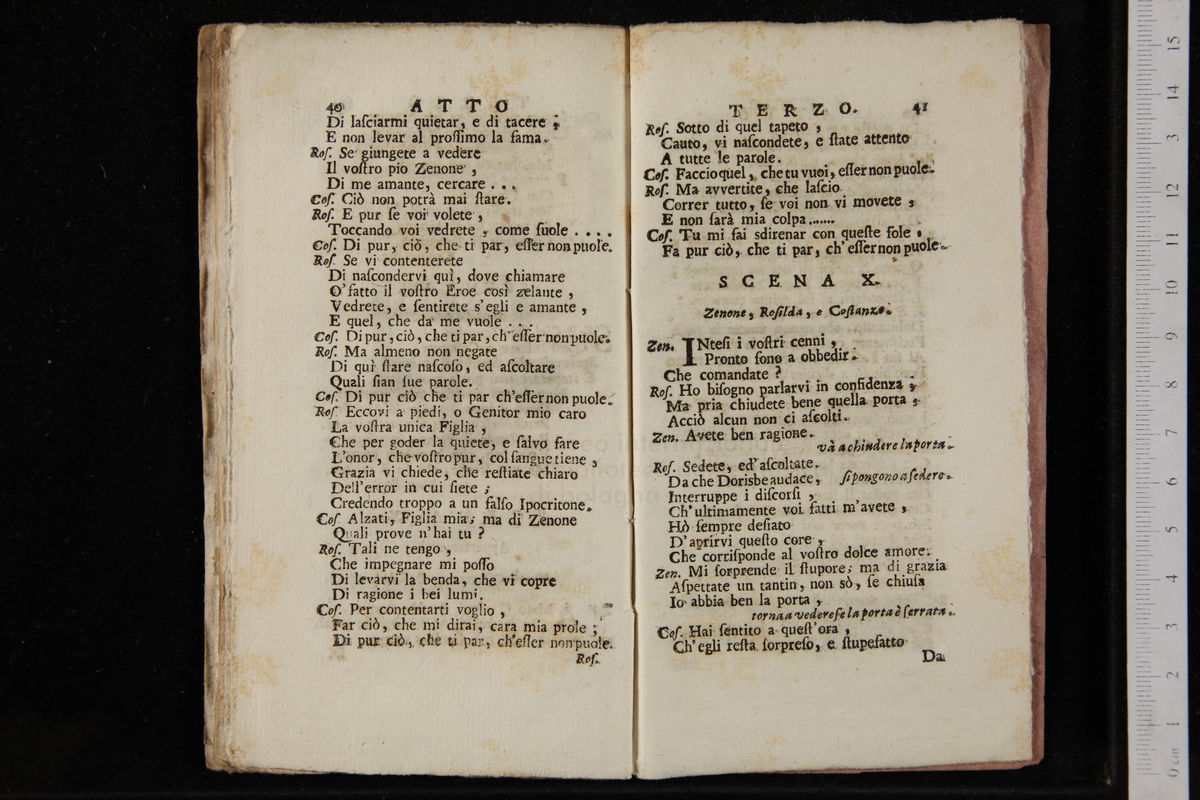 40 ATTO
Di laſciarmi quietar, e di tacere ;
E non levar al proſſimo la fama.
Roſ. Se giungete a vedere
Il voſtro pio Zenone ,
Di me amante, cercare . . .
Coſ. Ciò non potrà mai ſtare.
Roſ. E pur ſe voi volete ,
Toccando voi vedrete , come ſuole . . . .
Coſ. Di pur, ciò, che ti par, eſſer non puole.
Roſ. Se vi contenterete
Di naſcondervi quì, dove chiamare
O' fatto il voſtro Eroe così zelante ,
Vedrete, e ſentirete s'egli e amante ,
E quel, che da me vuole . . .
Coſ. Di pur, ciò, che ti par, ch'eſſer non puole.
Roſ. Ma almeno non negate
Di quì ſtare naſcoſo, ed aſcoltare
Quali ſian ſue parole.
Coſ. Di pur ciò che ti par ch'eſſer non puole.
Roſ. Eccovi a piedi, o Genitor mio caro
La voſtra unica Figlia ,
Che per goder la quiete, e ſalvo fare
L'onor, che voſtro pur, col ſangue tiene ,
Grazia vi chiede, che reſtiate chiaro
Dell'error in cui ſiete ;
Credendo troppo a un falſo Ipocritone.
Coſ. Alzati, Figlia mia; ma di Zenone
Quali prove n'hai tu ?
Roſ. Tali ne tengo ,
Che impegnare mi poſſo
Di levarvi la benda, che vi copre
Di ragione i bei lumi.
Coſ. Per contentarti voglio ,
Far ciò, che mi dirai, cara mia prole ;
Di pur ciò, che ti par, ch'eſſer non puole.
Roſ.
TERZO. 41
Roſ. Sotto di quel tapeto ,
Cauto, vi naſcondete, e ſtate attento
A tutte le parole.
Coſ. Faccio quel, che tu vuoi, eſſer non puole.
Roſ. Ma avvertite, che laſcio
Correr tutto, ſe voi non vi movete ,
E non ſarà mia colpa.......
Coſ. Tu mi fai sdirenar con queſte fole .
Fa pur ciò, che ti par, ch'eſſer non puole.
SCENA X.
Zenone, Roſilda, e Coſtanzo.
Zen. INteſi i voſtri cenni ,
Pronto ſono a obbedir.
Che comandate ?
Roſ. Ho biſogno parlarvi in confidenza ,
Ma pria chiudete bene quella porta ,
Acciò alcun non ci aſcolti.
Zen. Avete ben ragione.
và a chiudere la porta.
Roſ. Sedete, ed' aſcoltate.
Da che Dorisbe audace, ſi pongono a ſedere.
Interruppe i diſcorſi ,
Ch' ultimamente voi fatti m'avete ,
Hò ſempre deſiato
D' aprirvi queſto core ,
Che corriſponde al voſtro dolce amore.
Zen. Mi ſorprende il ſtupore; ma di grazia
Aſpettate un tantin, non sò, ſe chiuſa
Io abbia ben la porta ,
torna a vedere ſe la porta è ſerrata.
Coſ. Hai ſentito a queſt'ora ,
Ch'egli reſta ſorpreſo, e ſtupefatto
Da